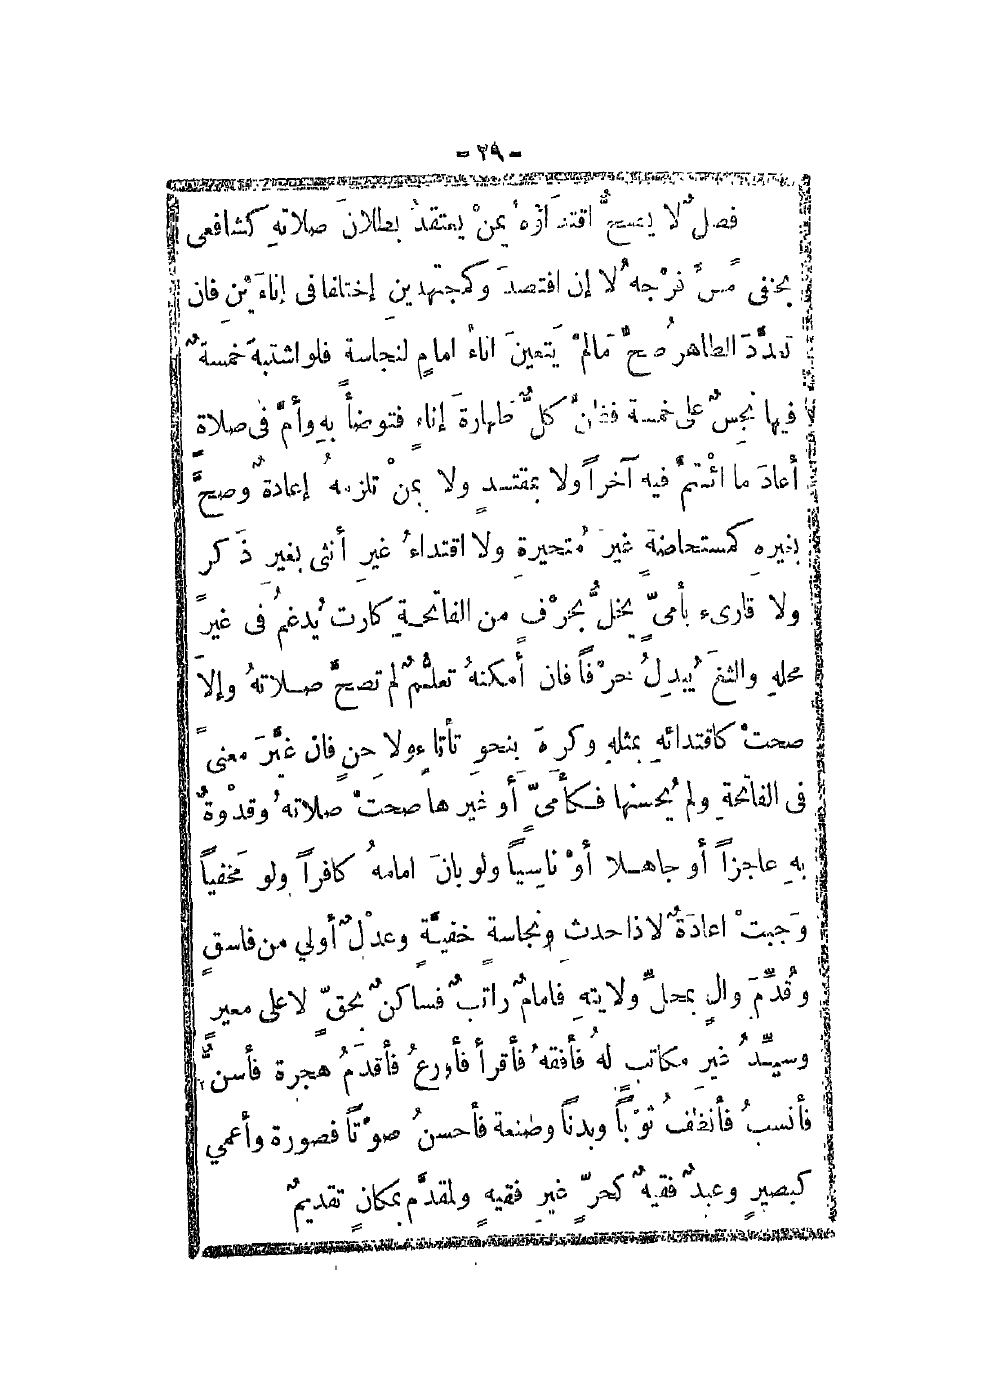 - ٢٩ -
فصلٌ لا يصحُّ اقتداؤُهُ بمنْ يعتقدُ بطلانَ صلاتهِ كشافعى
بحنفى مسَّ فرْجهُ لا إن افتصدَ وكمجتهدينِ إختلفا فى إناءَيْنِ فان
تعدَّدَ الطاهرُ صحَّ مالمْ يتعينَ اناءُ امامٍ لنجاسة فلو اشتبهَ خمسةٌ
فيها نجسٌ على خمسة فظنَّ كلٌّ طهارةَ إناءٍ فتوضأَ بهِ وأمَّ فى صلاةٍ
أعادَ ما ائْتمَّ فيه آخراً ولا بمقتدٍ ولا بمنْ تلزمهُ إعادةٌ وصحَّ
بغيرهِ كمستحاضةٍ غيرِ مُتحيرةِ ولا اقتداءُ غيرِ أنثى بغيرِ ذَكر
ولا قارىء بأمىٍّ يخلُّ بحرْفٍ من الفاتحةِ كارت يُدغمُ فى غيرِ
محلهِ والثغَ يُبدلُ حرْفاً فان أمكنهُ تعلُّمٌ لم تصحَّ صلاتهُ وإلاَّ
صحتْ كاقتدائهِ بمثلهِ وكرهَ بنحوِ تأتاءٍ ولاحنٍ فان غيَّرَ معنىً
فى الفاتحةِ ولم يُحسنها فكأمىٍّ أو غيرها صحتْ صلاتهُ وقدْوةٌ
بهِ عاجزاً أو جاهلا أوْ ناسِياً ولو بانَ امامهُ كافراً ولو مخفياً
وَجبتْ اعادَةٌ لا ذا حدث ونجاسةٍ خفيَّةٍ وعدْلٌ أولي من فاسقٍ
وقُدِّمَ والٍ بمحلِّ ولايتهِ فامامٌ راتبٌ فساكنٌ بحقٍّ لا على معيرٍ
وسيِّدُ غيرِ مكاتبٍ لهُ فأفقهُ فأقرأُ فأورعُ فأقدَمُ هجرة فأسنُّ
فأنسبُ فأنظفُ ثوْباً وبدناً وصنعة فأحسنُ صوْتاً فصورة وأعمي
كبصيرٍ وعبدٌ فقيهٌ كحرٍّ غيرِ فقيهٍ ولمقدَّم بمكانٍ تقديمٌ